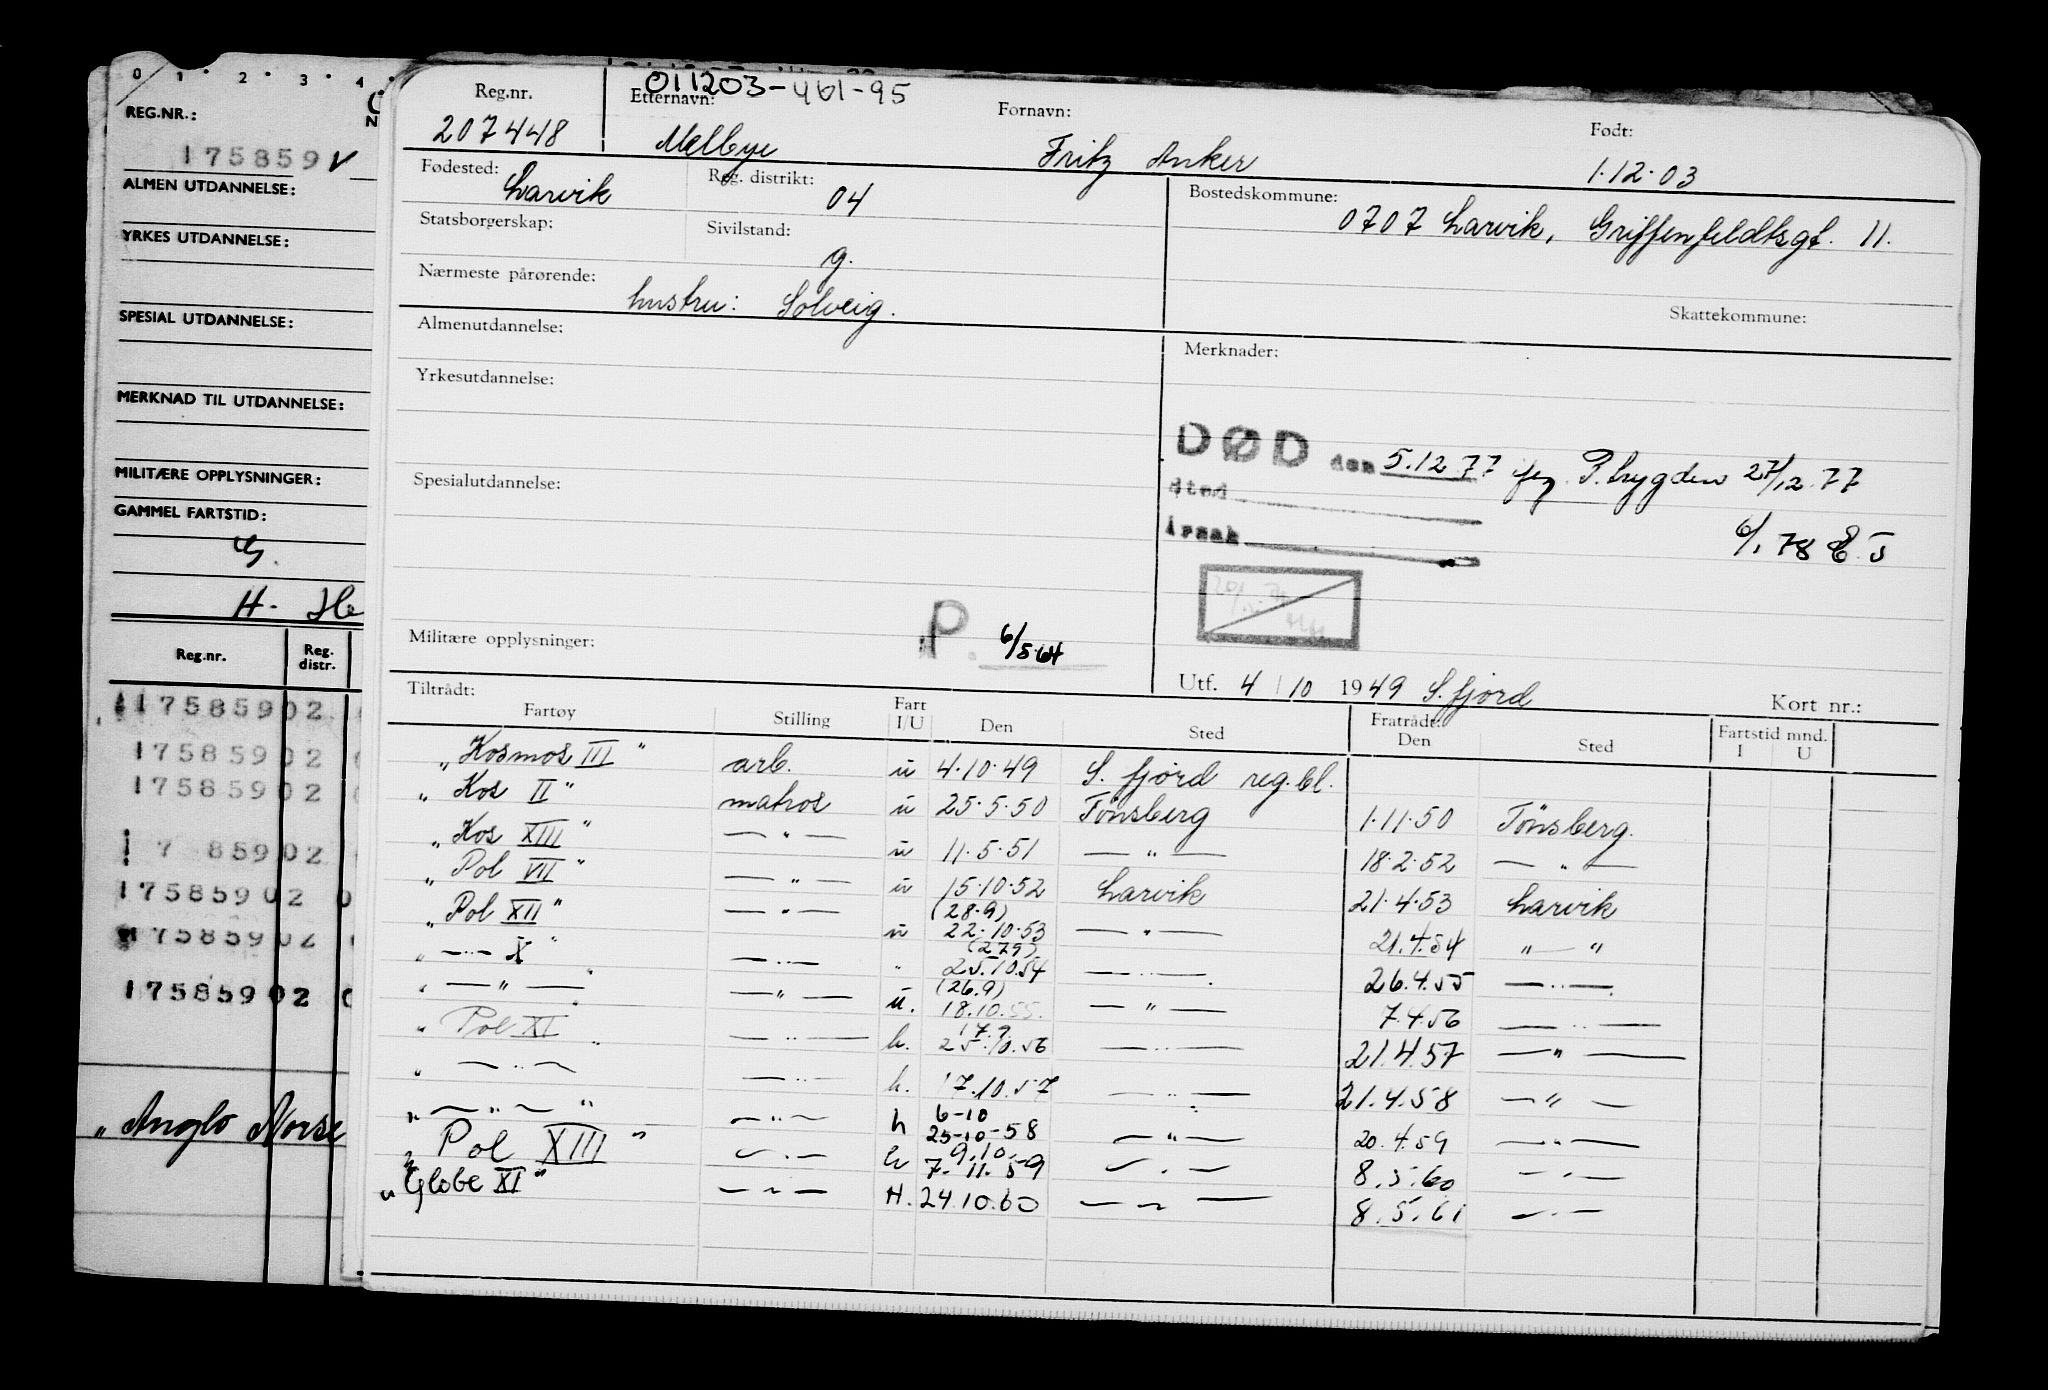 0 1 2 3 4
REG.NR.:
175859 V
ALMEN UTDANNELSE:
YRKES UTDANNELSE:
SPESIAL UTDANNELSE:
MERKNAD TIL UTDANNELSE:
MILITÆRE OPPLYSNINGER:
GAMMEL FARTSTID:
H.
Reg.nr. Reg. distr.
175859 02
175859 02
175859 02
1 7 859 02
175859 02
175859 02
175859 02
„Anglo Norse
011203-461-95
Reg.nr. Etternavn: Fornavn: Født:
207448 Melbye Fritz Anker 1.12.03
Fødested: Larvik Reg. distrikt: 04 Bostedskommune:
0707 Larvik, Griffenfeldtsgt. 11.
Statsborgerskap: Sivilstand: g.
Nærmeste pårørende: hustru: Solveig.
Skattekommune:
Almenutdannelse: Merknader:
Yrkesutdannelse:
DØD den 5.12.77 P.trygden 27/12.77
Spesialutdannelse:
sted
årsak 6/1 78
P. 6/5 64
Militære opplysninger:
Utf. 4/10 1949 S.fjord Kort nr.:
Tiltrådt: Fratrådt: Fartstid mnd.
Fartøy Stilling Fart I/U Den Sted Den Sted I U
„Kosmos III" arb. u 4.10.49 S.fjord reg.bl.
„Kos II" matros u 25.5.50 Tønsberg 1.11.50 Tønsberg.
„Kos XIII" — " — u 11.5.51 — " — 18.2.52 — " —
„Pol VII" — " — u 15.10.52 Larvik 21.4.53 Larvik
„Pol XII" — " — u (28.9) 22.10.53 — " — 21.4.54 " — "
„ — " — X" — " — " (27.9) 25.10.54 — " — 26.4.55 — " —
„ — " — " — " — u. (26.9) 18.10.55. — " — 7.4.56 — " —
„Pol XI" — " — h. 17.9. 25.10.56 — " — 21.4.57 — " —
„ — " — — " — h. 17.10.57 — " — 21.4.58 — " —
„ — " — " — " — h 6-10 25-10-58 — " — 20.4.59 — " —
„Pol XIII" — " — h 9.10. 7.11.59 — " — 8.5.60 — " —
„Globe XI" — " — H. 24.10.60 — " — 8.5.61 — " —